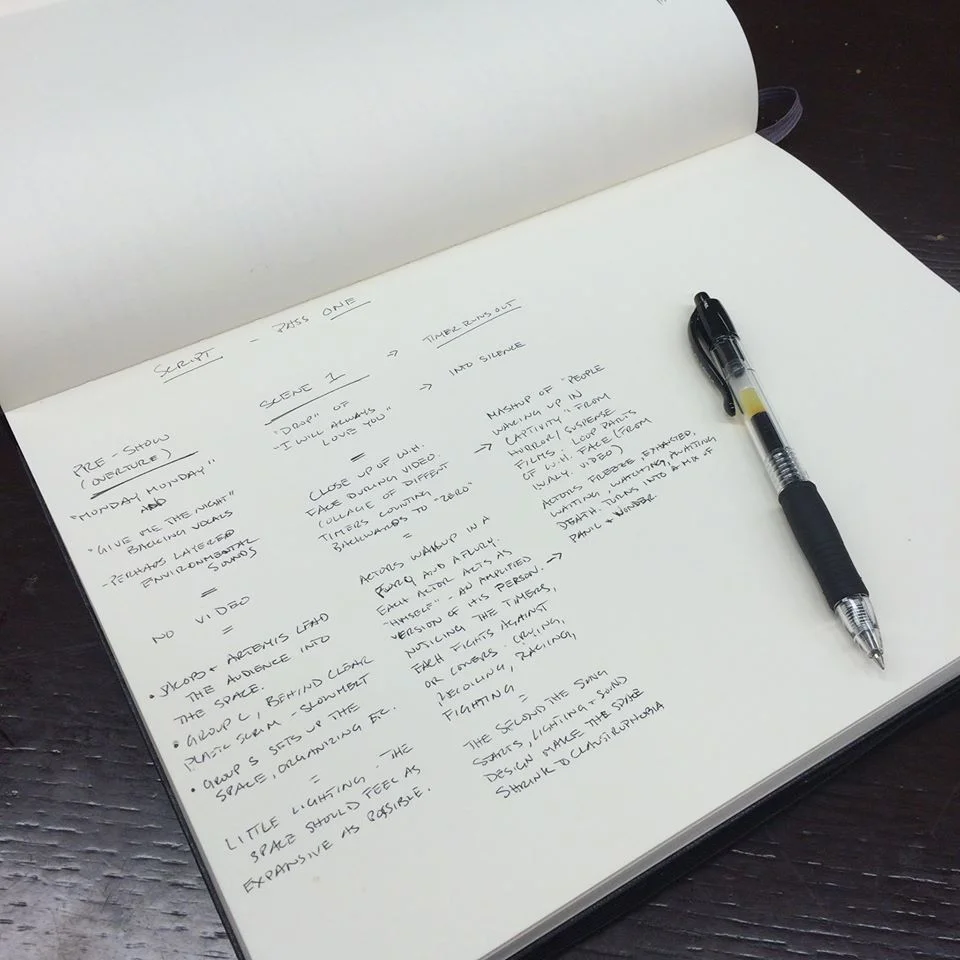 SCRIPT - PASS ONE
PRE-SHOW
(OVERTURE)
"MONDAY MONDAY"
AND
"GIVE ME THE NIGHT"
BACKING VOCALS
- PERHAPS LAYERED
ENVIRONMENTAL
SOUNDS
=
NO VIDEO
=
• JACOB + ARTEMIS LEAD
THE AUDIENCE INTO
THE SPACE.
• GROUP L, BEHIND CLEAR
PLASTIC SCRIM - SLOW MELT
• GROUP S SETS UP THE
SPACE, ORGANIZING ETC.
=
LITTLE LIGHTING - THE
SPACE SHOULD FEEL AS
EXPANSIVE AS POSSIBLE.
SCENE 1
"DROP" OF
"I WILL ALWAYS
LOVE YOU"
=
CLOSE UP OF W.H.
FACE DURING VIDEO.
COLLAGE OF DIFFENT
TIMERS COUNTING
BACKWARDS TO "ZERO"
=
ACTORS WAKEUP IN A
FURY AND A FLURY.
EACH ACTOR ACTS AS
"HIMSELF" - AN AMPLIFIED
VERSION OF HIS PERSON. →
NOTICING THE TIMERS,
EACH FIGHTS AGAINST
OR COWERS. CRYING,
RECOILING, RAGING,
FIGHTING
=
THE SECOND THE SONG
STARTS, LIGHTING + SOUND
DESIGN MAKE THE SPACE
SHRINK TO CLAUSTRUPHOBIA
→ TIMER RUNS OUT
→ INTO SILENCE
→ MASHUP OF "PEOPLE
WAKING UP IN
CAPTIVITY" FROM
HORROR/SUSPENSE
FILMS; LOOP PARTS
OF W.H. FACE (FROM
IWALY VIDEO)
ACTORS FREEZE, EXHAUSTED,
WAITING, WATCHING, AWAITING
DEATH. TURNS INTO A MIX OF
PANIC + WONDER